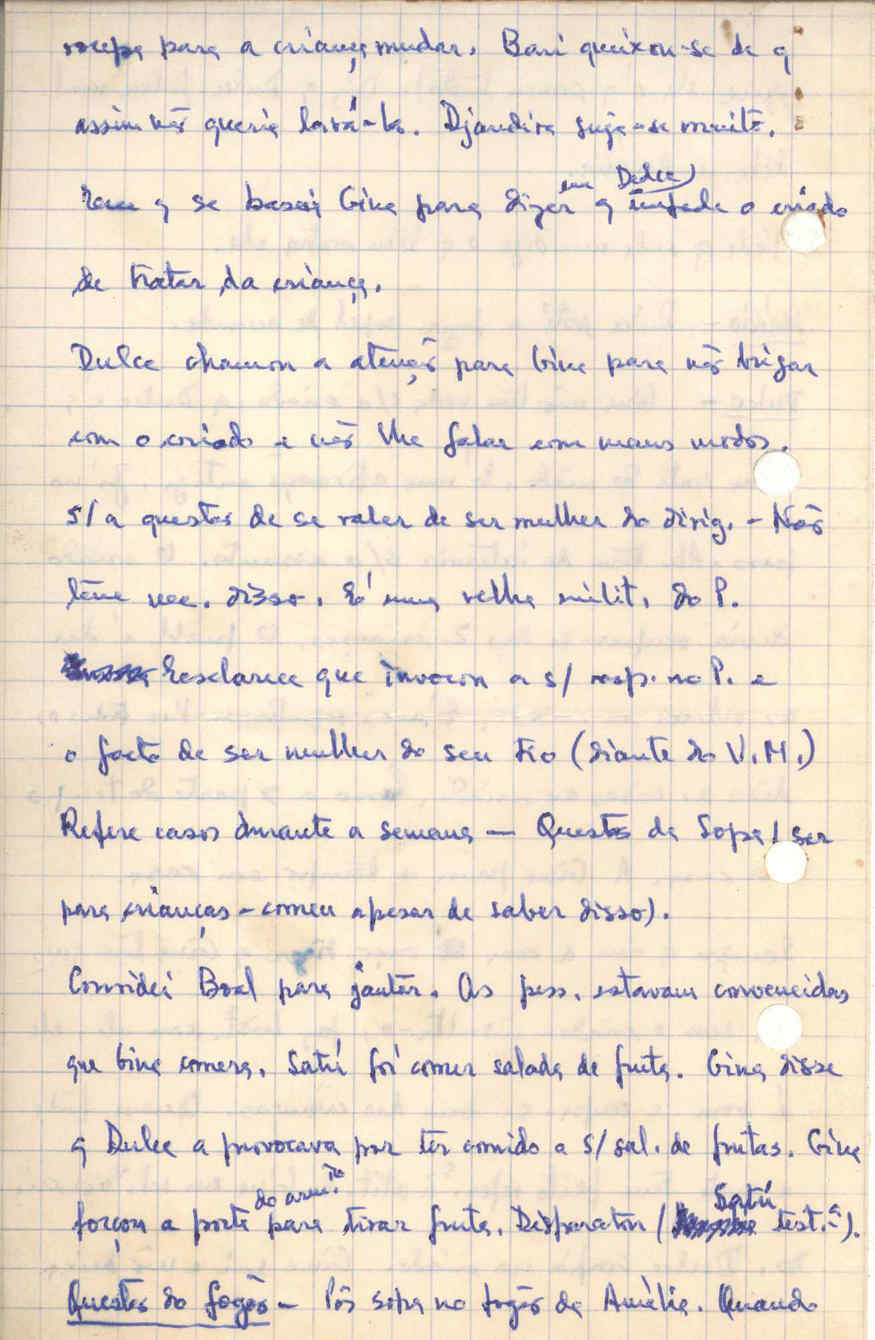 roupa para a criança mudar. Bani queixou-se de q
assim não queria lavá-la. Djandira suja-se muito.
q se Gina para dizer q em Dulce impede o criado
de tratar da criança.
Dulce chamou a atenção para Gina para não brigar
com o criado e não lhe falar com maus modos.
S/ a questão de se valer de ser mulher do dirig. - Não
tem nec. disso. É uma velha milit. do P.
Esclarece que invocou a s/ resp. no P. e
o facto de ser mulher do seu tio (diante do V.M.)
Refere casos durante a semana — Questão da Sopa (ser
para crianças - comeu apesar de saber disso).
Convidei Boal para jantar. As pess. estavam convencidas
que Gina comera. Satú foi comer salada de fruta. Gina disse
q Dulce a provocava por ter comido a s/ sal. de frutas. Gina
forçou a porta do arm.io para tirar fruta. Disparatou (Satú test.a).
Questão do fogão - Pôs sopa no fogão da Amélia. Quando